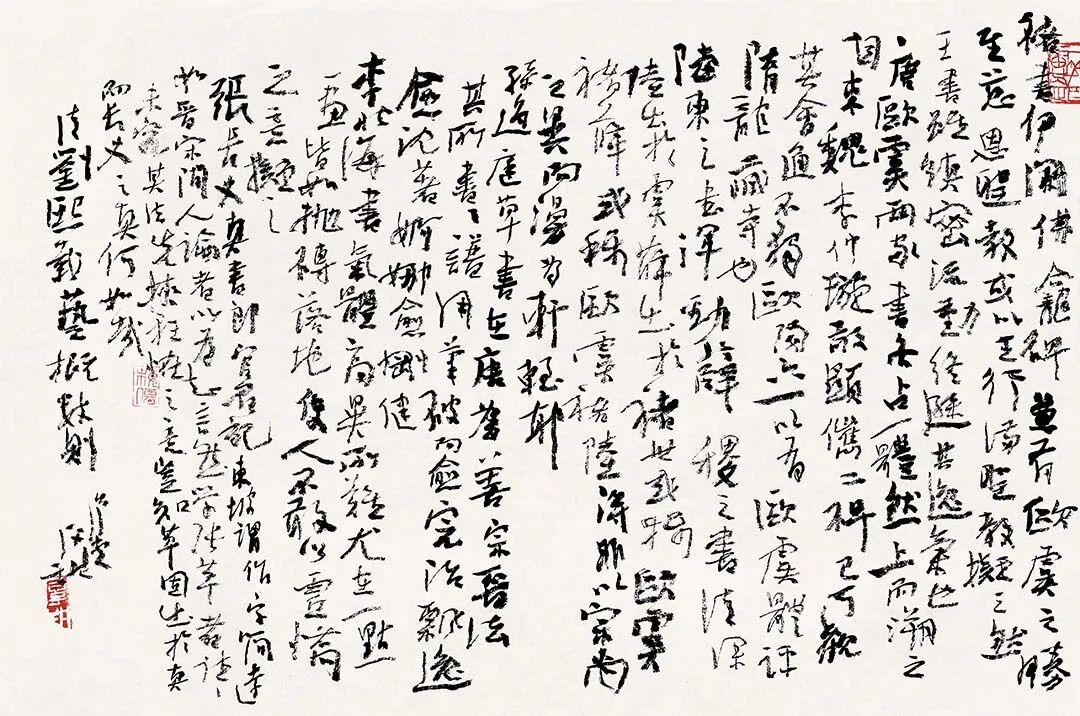 褚書伊闕佛龕碑兼有歐虞之勝
至慈恩聖教或以王行滿聖教擬之然
王書雖縝密流動終遜其逸氣也
唐歐虞兩家書各占一體然上而溯之
自東魏李仲璇敬顯儁二碑已可觀
其會通不獨歐陽六一以有歐虞體評
隋龍藏寺也
陸柬之書渾勁薛稷之書清深
陸出於虞薛出於褚世或稱歐虞
褚薛或稱歐虞褚陸得非以宗尚
之異而漫為軒輊耶
孫過庭草書在唐為善宗晉法
其所書〻譜用筆破而愈完治飄逸
愈沈著婀娜愈剛健
李北海書氣體高異所難尤在一點
一畫皆如拋磚落地使人不敢以虛憍
之意擬之
張長史真書郎官石記東坡謂作字簡遠
如晉宋間人論者以為知言然學張草者往〻
未究其法先墮狂怪之意豈知草固出於真
而長史之真何如哉
清劉熙載藝概數則